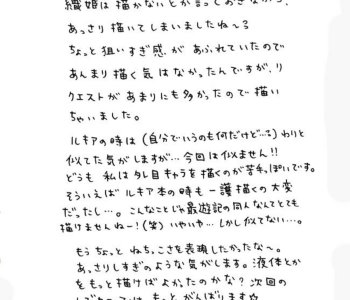 織姫は描かないとか言っておきながら、
あっさり描いてしまいましたね〜る
ちょっと狙いすぎ感があふれていたので
あんまり描く気はなかったんですが、リ
クエストがあまりにも多かったので描い
ちゃいました。
ルキアの時は(自分でいうのも何だけど…る)わりと
似てた気がしますが…今回は似ません!!
どうも私はタレ目キャラを描くのが苦手っぽいです。
そういえばルキア本の時も一護描くの大変
だったし…。こんなことじゃ最遊記の同人なんてとても
描けませんねー!(笑)いやいや…しかし似てない…。
もうちょっとねちっこさを表現したかったな〜。
あっさりしすぎのような気がします。液体とか
をもっと描けばよかったのかな?次回の
もっとがんばります☆